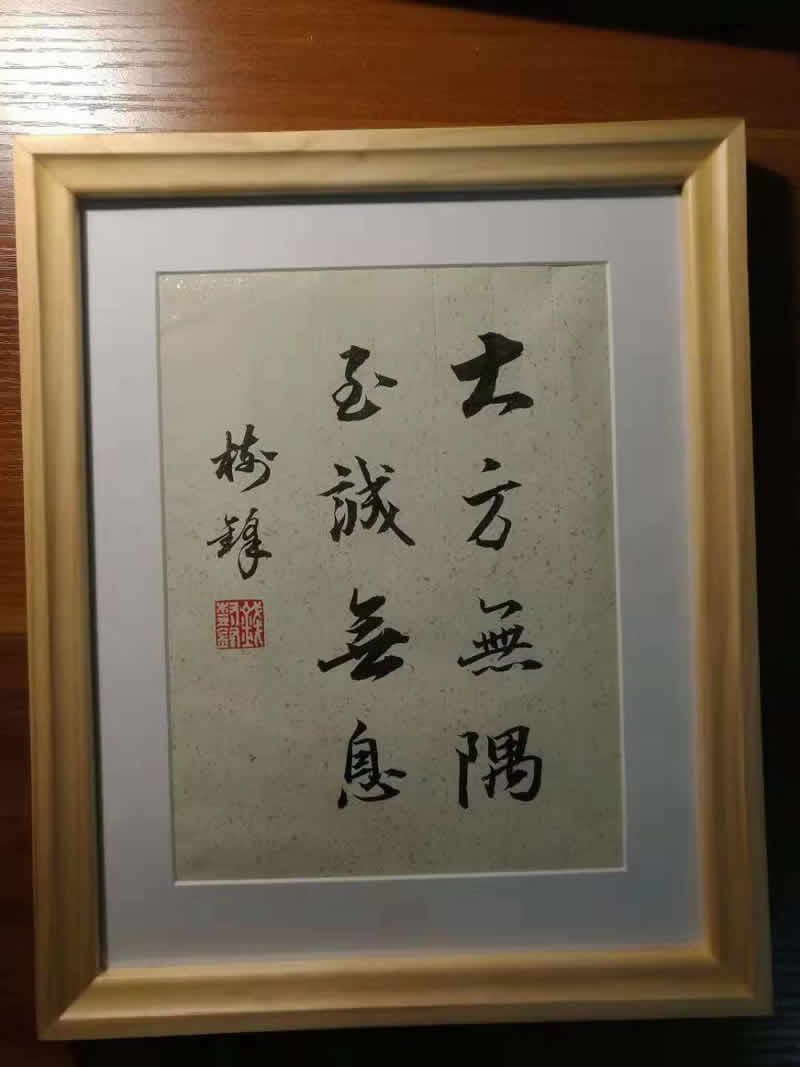 大方無隅
至誠無息
樹鋒